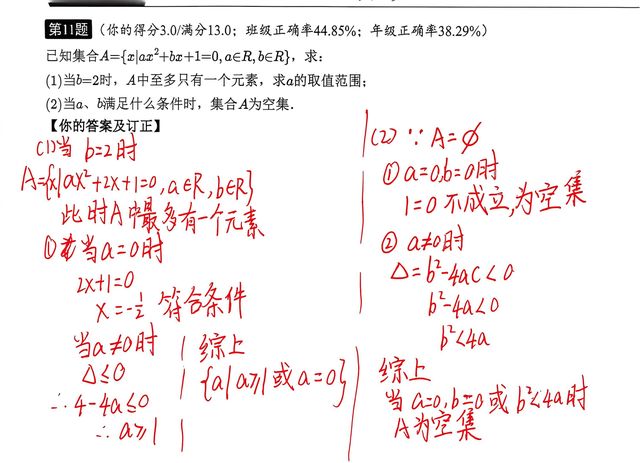 第11题 （你的得分3.0/满分13.0；班级正确率44.85%；年级正确率38.29%）
已知集合A={x|ax²+bx+1=0, a∈R, b∈R}，求：
(1)当b=2时，A中至多只有一个元素，求a的取值范围；
(2)当a、b满足什么条件时，集合A为空集．
【你的答案及订正】
(1)当 b=2时
A={x|ax²+2x+1=0, a∈R, b∈R}
此时A中最多有一个元素
① 当a=0时
2x+1=0
x=-1/2 符合条件
当a≠0时
Δ≤0
∴4-4a≤0
∴a≥1
综上
{a|a≥1或a=0}
(2) ∵A=∅
① a=0,b=0时
1=0 不成立,为空集
② a≠0时
Δ=b²-4ac<0
b²-4a<0
b²<4a
综上
当 a=0,b=0或 b²<4a时
A为空集